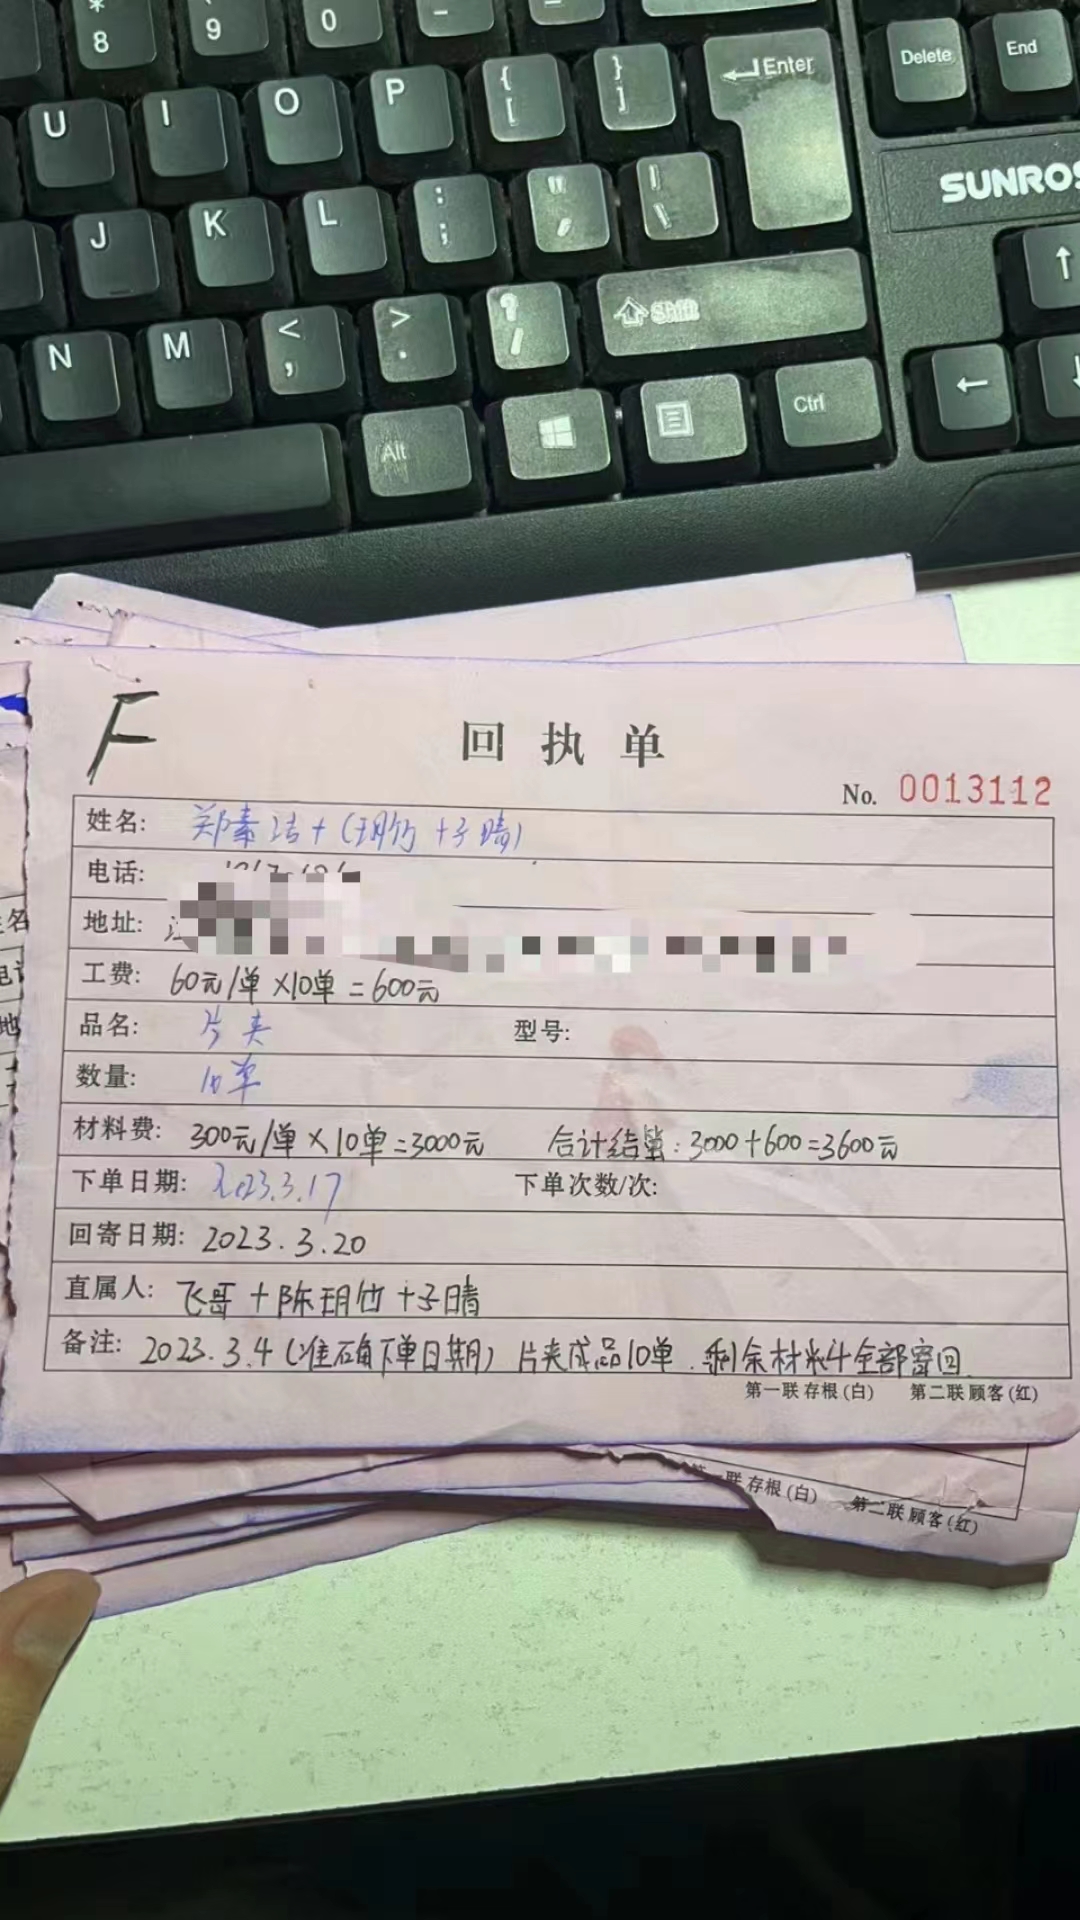 * 8
9
0
U I O P { [ } ] Enter Delete End
J K L : ; " ' | \ SUNROS
N M < , > . ? / Shift ↑
Alt Ctrl ← ↓
F
回执单
No. 0013112
姓名: 郑素洁+(玥竹+子晴)
电话:
地址:
工费: 60元/单×10单=600元
品名: 片夹 型号:
数量: 10单
材料费: 300元/单×10单=3000元 合计结算:3000+600=3600元
下单日期: 2023.3.17 下单次数/次:
回寄日期: 2023.3.20
直属人: 飞哥+陈玥竹+子晴
备注: 2023.3.4(准确下单日期)片夹成品10单.剩余材料全部寄回.
第一联 存根(白) 第二联 顾客(红)
联 存根(白) 第二联 顾客(红)